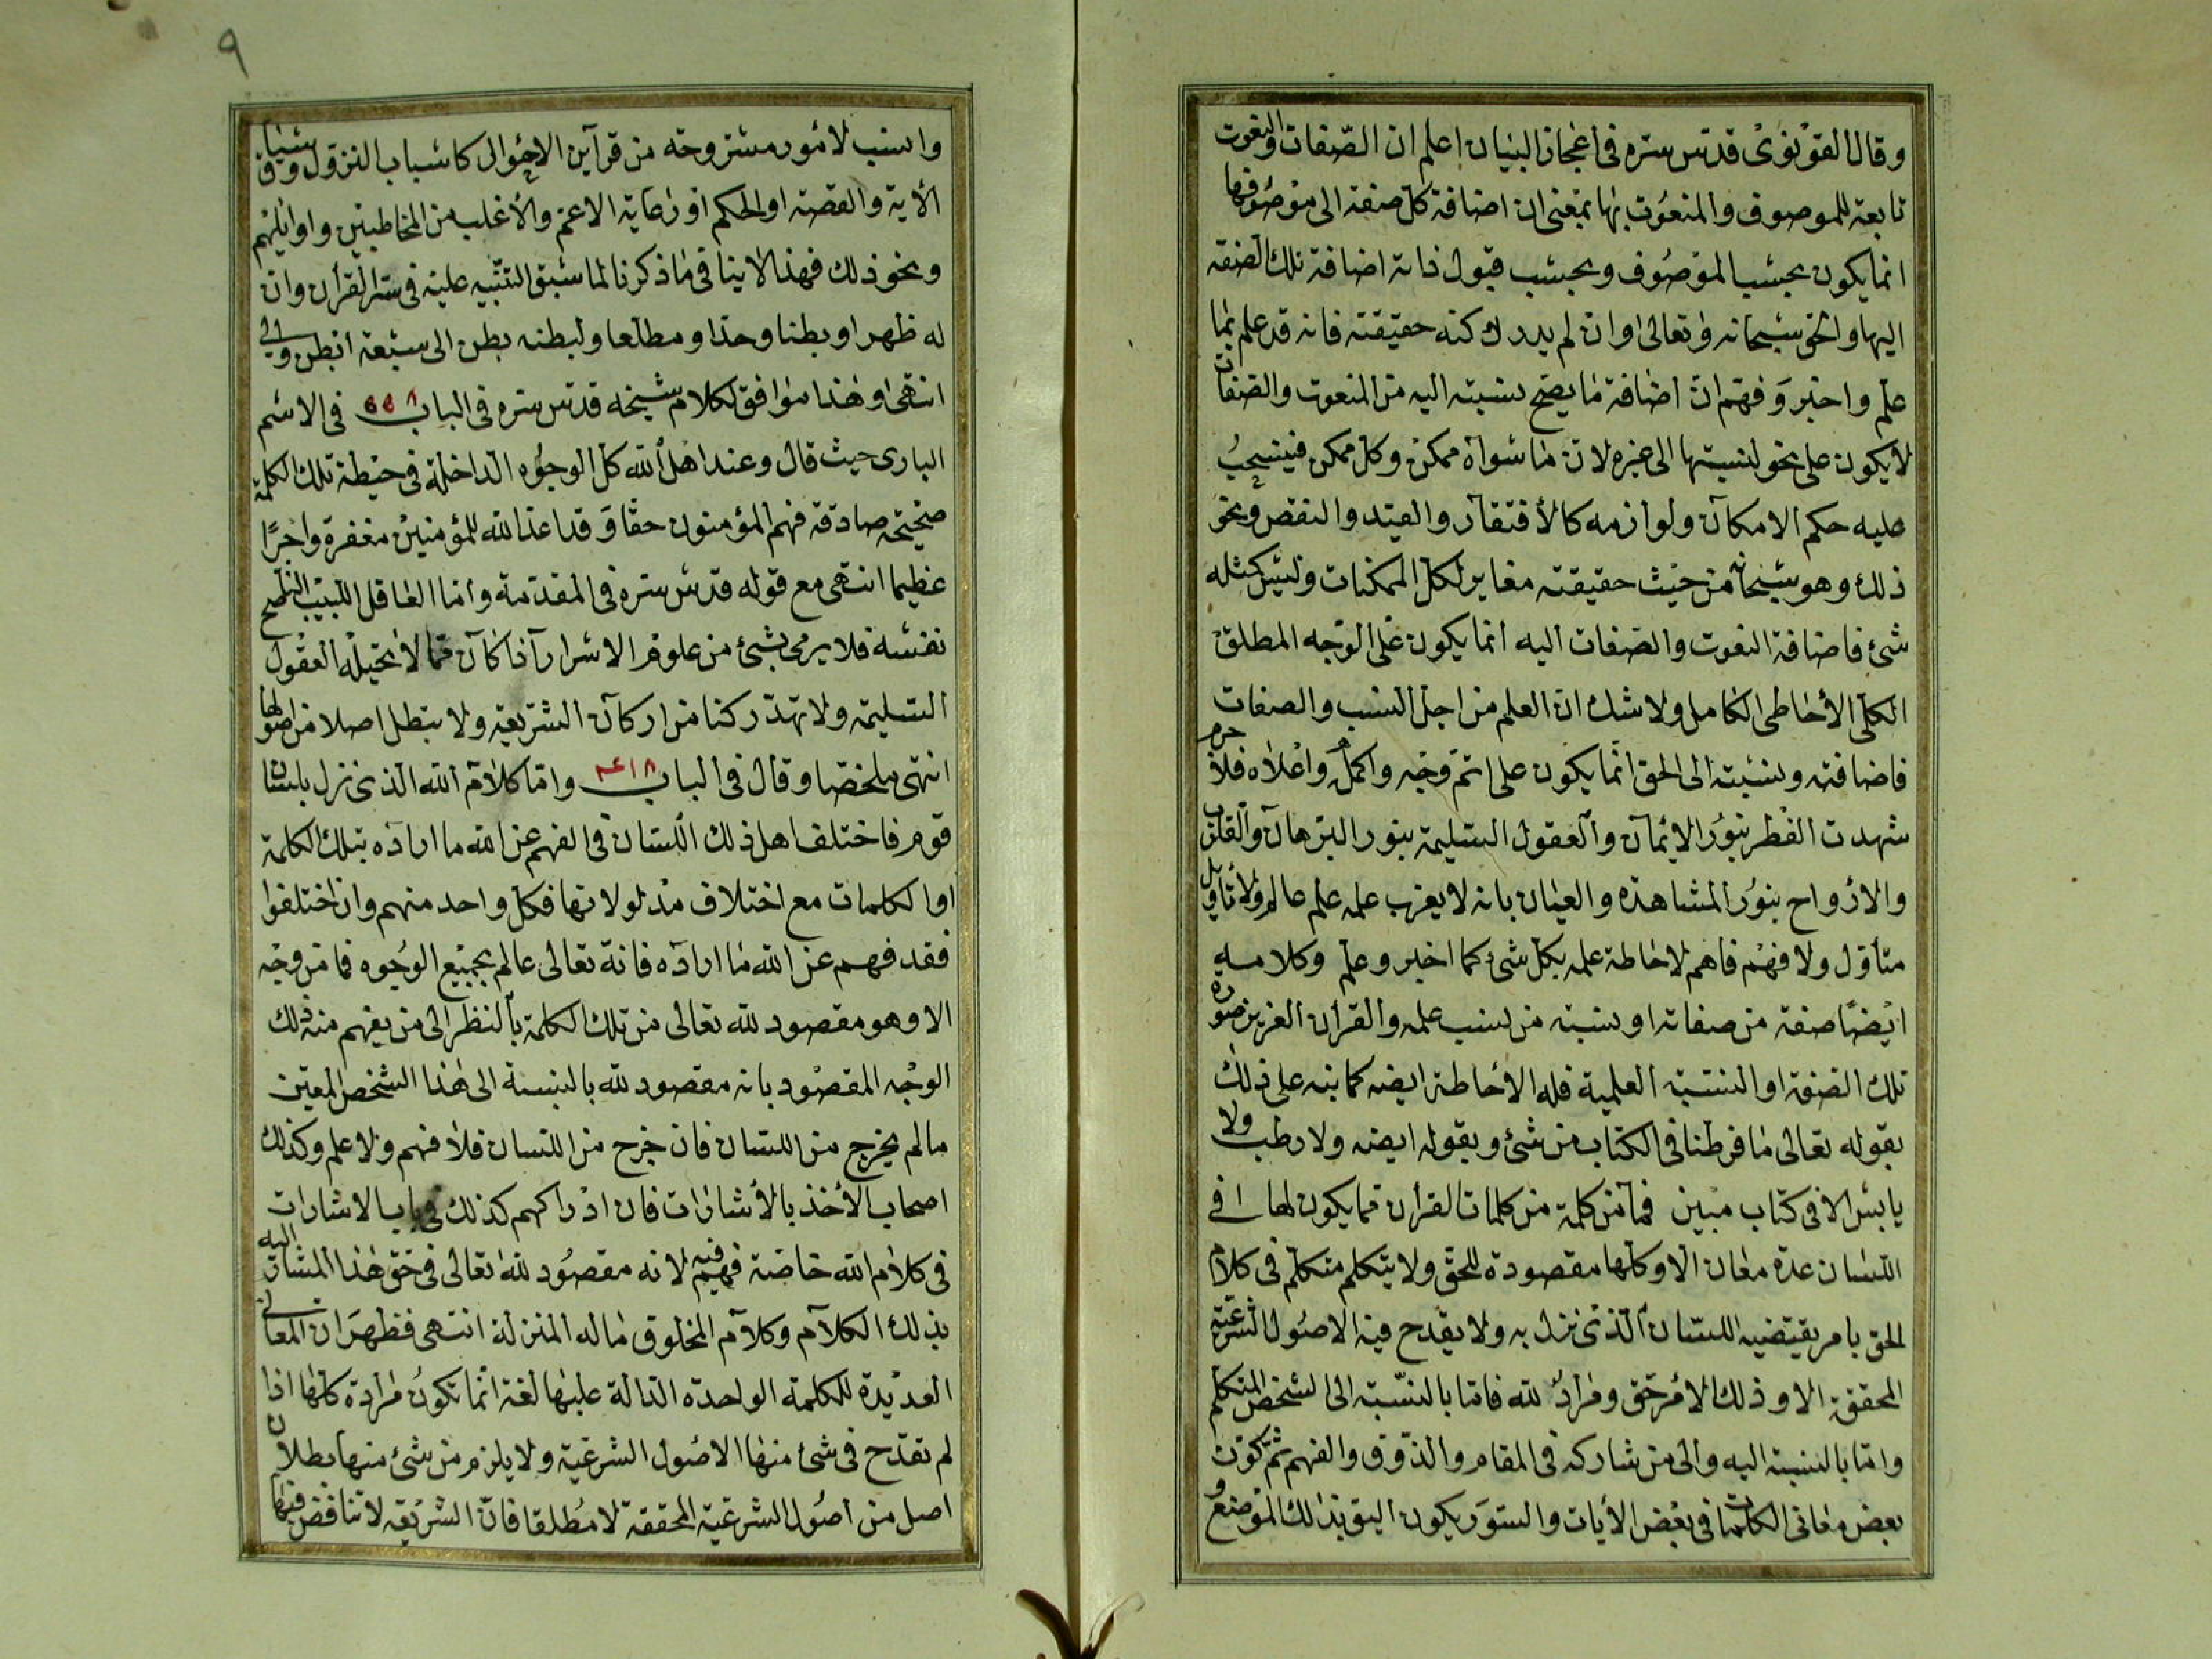 وقال القونوى قدس سره فى اعجاز البيان اعلم ان الصفات والنعوت
تابعة للموصوف والمنعوت بها بمعنى ان اضافة كل صفة الى موصوفها
انما يكون بحسب الموصوف وبحسب قبول ذاته اضافة تلك الصفة
اليها والحق سبحانه وتعالى وان لم يدرك كنه حقيقته فانه قد علم بما
علم واخبر وفهم ان اضافة ما يصح نسبته اليه من النعوت والصفات
لا يكون على نحو نسبتها الى غيره لان ما سواه ممكن وكل ممكن فينسحب
عليه حكم الامكان ولوازمه كالأفتقار والقيد والنقص ونحو
ذلك وهو سبحانه من حيث حقيقته مغاير لكل الممكنات وليس كمثله
شئ فاضافة النعوت والصفات اليه انما يكون على الوجه المطلق
الكلى الأحاطى الكامل ولا شك ان العلم من اجل النسب والصفات
فاضافته ونسبته الى الحق انما يكون على اتم وجه واكمله واعلاه فلا جرم
شهدت الفطر بنور الايمان والعقول السليمة بنور البرهان والقلوب
والارواح بنور المشاهدة والعيان بانه لا يعزب عن علمه علم عالم ولا تأويل
متأول ولا فهم فاهم لاحاطة علمه بكل شئ كما اخبر وعلم وكلامه
ايضا صفة من صفاته او نسبة من نسب علمه والقرآن العزيز صورة
تلك الصفة او النسبة العلمية فله الأحاطة ايضه كما نبه على ذلك
بقوله تعالى ما فرطنا فى الكتاب من شئ وبقوله ايضه ولا رطب ولا
يابس الا فى كتاب مبين فما من كلمة من كلمات القرآن مما يكون لها فى
اللسان عدة معان الا وكلها مقصودة للحق ولا يتكلم متكلم فى كلام
الحق بامر يقتضيه اللسان الذى نزل به ولا يقدح فيه الاصول الشرعية
المحققة الا وذلك الامر حق ومراد لله فاما بالنسبة الى الشخص المتكلم
واما بالنسبة اليه والى من شاركه فى المقام والذوق والفهم ثم كون
بعض معانى الكلمات فى بعض الأيات والسور يكون اليق بذلك الموضع
وانسب لامور مشروحة من قرآين الاحوال كاسباب النزول وسياق
الأية والقصة او الحكم او رعاية الاعم والأغلب من المخاطبين واوايلهم
ونحو ذلك فهذا لا ينافى ما ذكرنا لما سبق التنبيه عليه فى سر القرآن وان
له ظهرا وبطنا وحدا ومطلعا ولبطنه بطن الى سبعة ابطن والى
انتهى وهذا موافق لكلام شيخه قدس سره فى الباب ٥٥٨ فى الاسم
البارى حيث قال وعند اهل الله كل الوجوه الداخلة فى حيطة تلك الكلمة
صحيحة صادقة فهم المؤمنون حقا وقد اعد الله للمؤمنين مغفرة واجرا
عظيما انتهى مع قوله قدس سره فى المقدمة واما العاقل اللبيب الناصح
نفسه فلا يرمى بشئ من علوم الاسرار اذا كان مما لا يحيله العقول
السليمة ولا تهد ركنا من اركان الشريعة ولا تبطل اصلا من اصولها
انتهى ملخصا وقال فى الباب واما كلام الله الذى نزل بلسان
قوم فاختلف اهل ذلك اللسان فى الفهم عن الله ما اراده بتلك الكلمة
او الكلمات مع اختلاف مدلولاتها فكل واحد منهم وان اختلفوا
فقد فهم عن الله ما اراده فانه تعالى عالم بجميع الوجوه فما من وجه
الا وهو مقصود لله تعالى من تلك الكلمة بالنظر الى من يفهم منه ذلك
الوجه المقصود بانه مقصود لله بالنسبة الى هذا الشخص المعين
ما لم يخرج من اللسان فان خرج من اللسان فلا فهم ولا علم وكذلك
اصحاب الأخذ بالأشارات فان ادراكهم كذلك فى باب الاشارات
فى كلام الله خاصة فهم فيه لانه مقصود لله تعالى فى حق هذا المشار اليه
بذلك الكلام وكلام المخلوق ما له المنزلة انتهى فظهر ان المعانى
العديدة للكلمة الواحدة الدالة عليها لغة انما تكون مرادة كلها اذا
لم تقدح فى شئ منها الاصول الشرعية ولا يلزم من شئ منها بطلان
اصل من اصول الشرعية المحققة لا مطلقا فان الشريعة لا تناقض فيها
٩